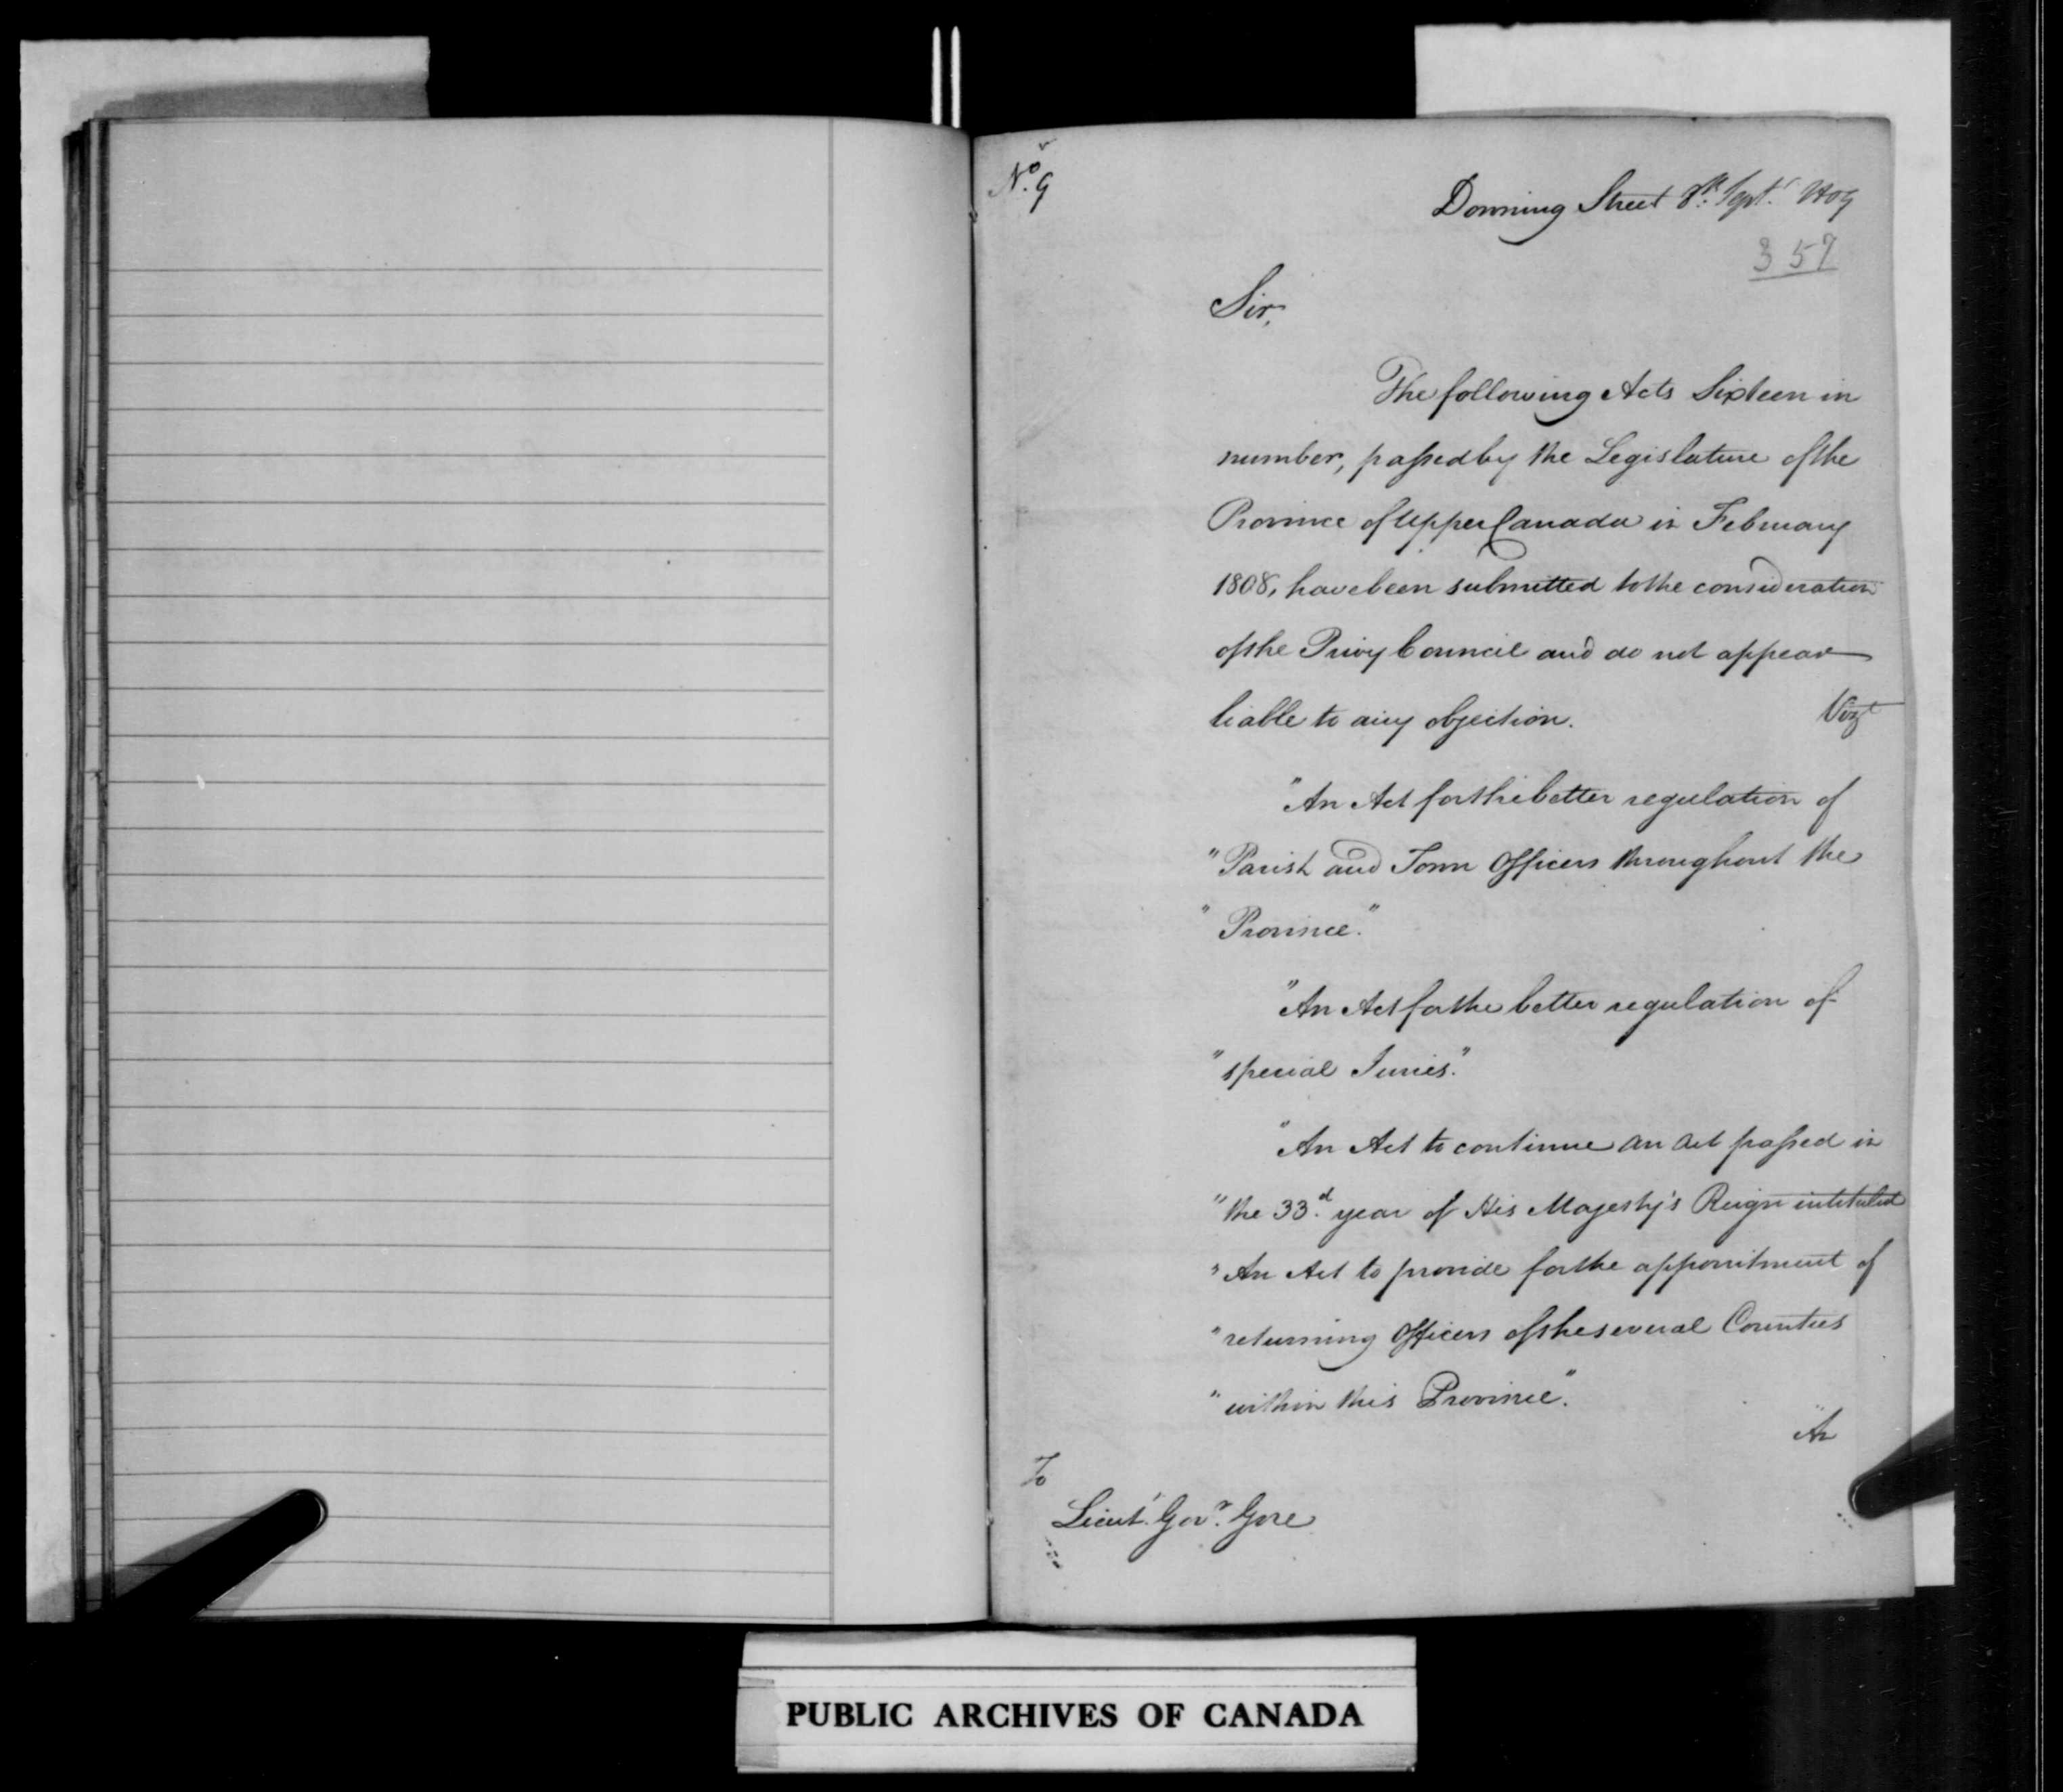 No. 9
Downing Street 8th. Septr. 1809
357
Sir,
The following Acts Sixteen in
number, passed by the Legislature of the
Province of Upper Canada in February
1808, have been submitted to the consideration
of the Privy Council and do not appear
liable to any objection. Vizt
"An Act for the better regulation of
"Parish and Town Officers throughout the
"Province."
"An Act for the better regulation of
"special Juries."
"An Act to continue an act passed in
"the 33d. year of His Majesty's Reign intituled
"An Act to provide for the appointment of
"returning Officers of the several Counties
"within this Province".
"An
To
Lieut. Govr. Gore
PUBLIC ARCHIVES OF CANADA